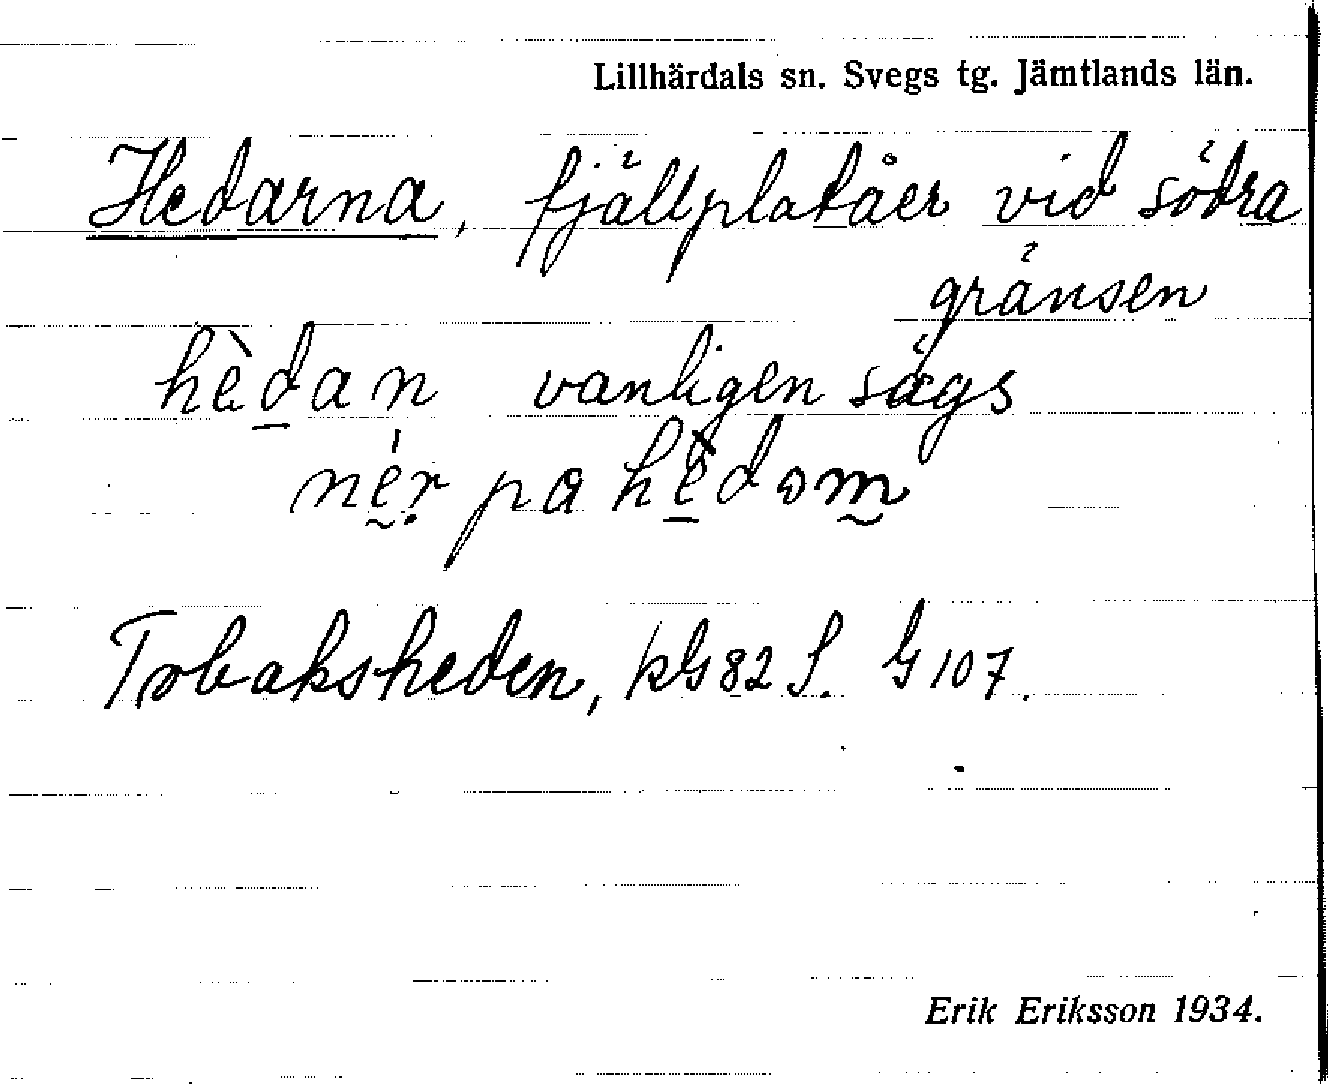 Lillhärdals sn. Svegs tg. Jämtlands län.
Hedarna, fjällplatåer vid södra
gränsen
hèdan vanligen sägs
nér pa hèdom
Tobaksheden, kG 82 S. G 107.
Erik Eriksson 1934.